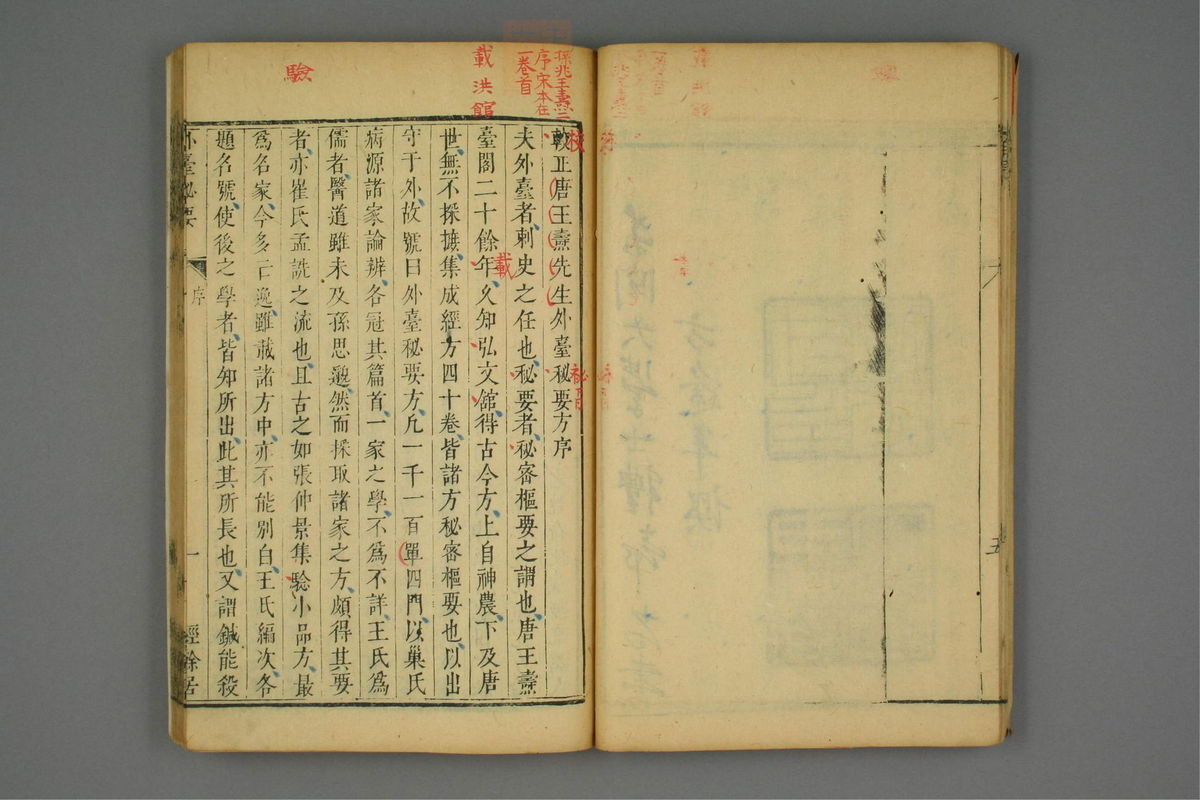 孫兆王燾二
序宋本在
一卷首
載洪館
驗
校
秘
載
較正唐王燾先生外臺秘要方序
夫外臺者刺史之任也秘要者秘密樞要之謂也唐王燾
臺閣二十餘年久知弘文舘得古今方上自神農下及唐
世無不採摭集成經方四十卷皆諸方秘密樞要也以出
守于外故號曰外臺秘要方凡一千一百單四門以巢氏
病源諸家論辨各冠其篇首一家之學不爲不詳王氏爲
儒者醫道雖未及孫思邈然而採取諸家之方頗得其要
者亦崔氏孟詵之流也且古之如張仲景集騐小品方最
爲名家今多亡逸雖載諸方中亦不能別白王氏編次各
題名號使後之學者皆知所出此其所長也又謂鍼能殺
外臺秘要
序
一
經餘居
五